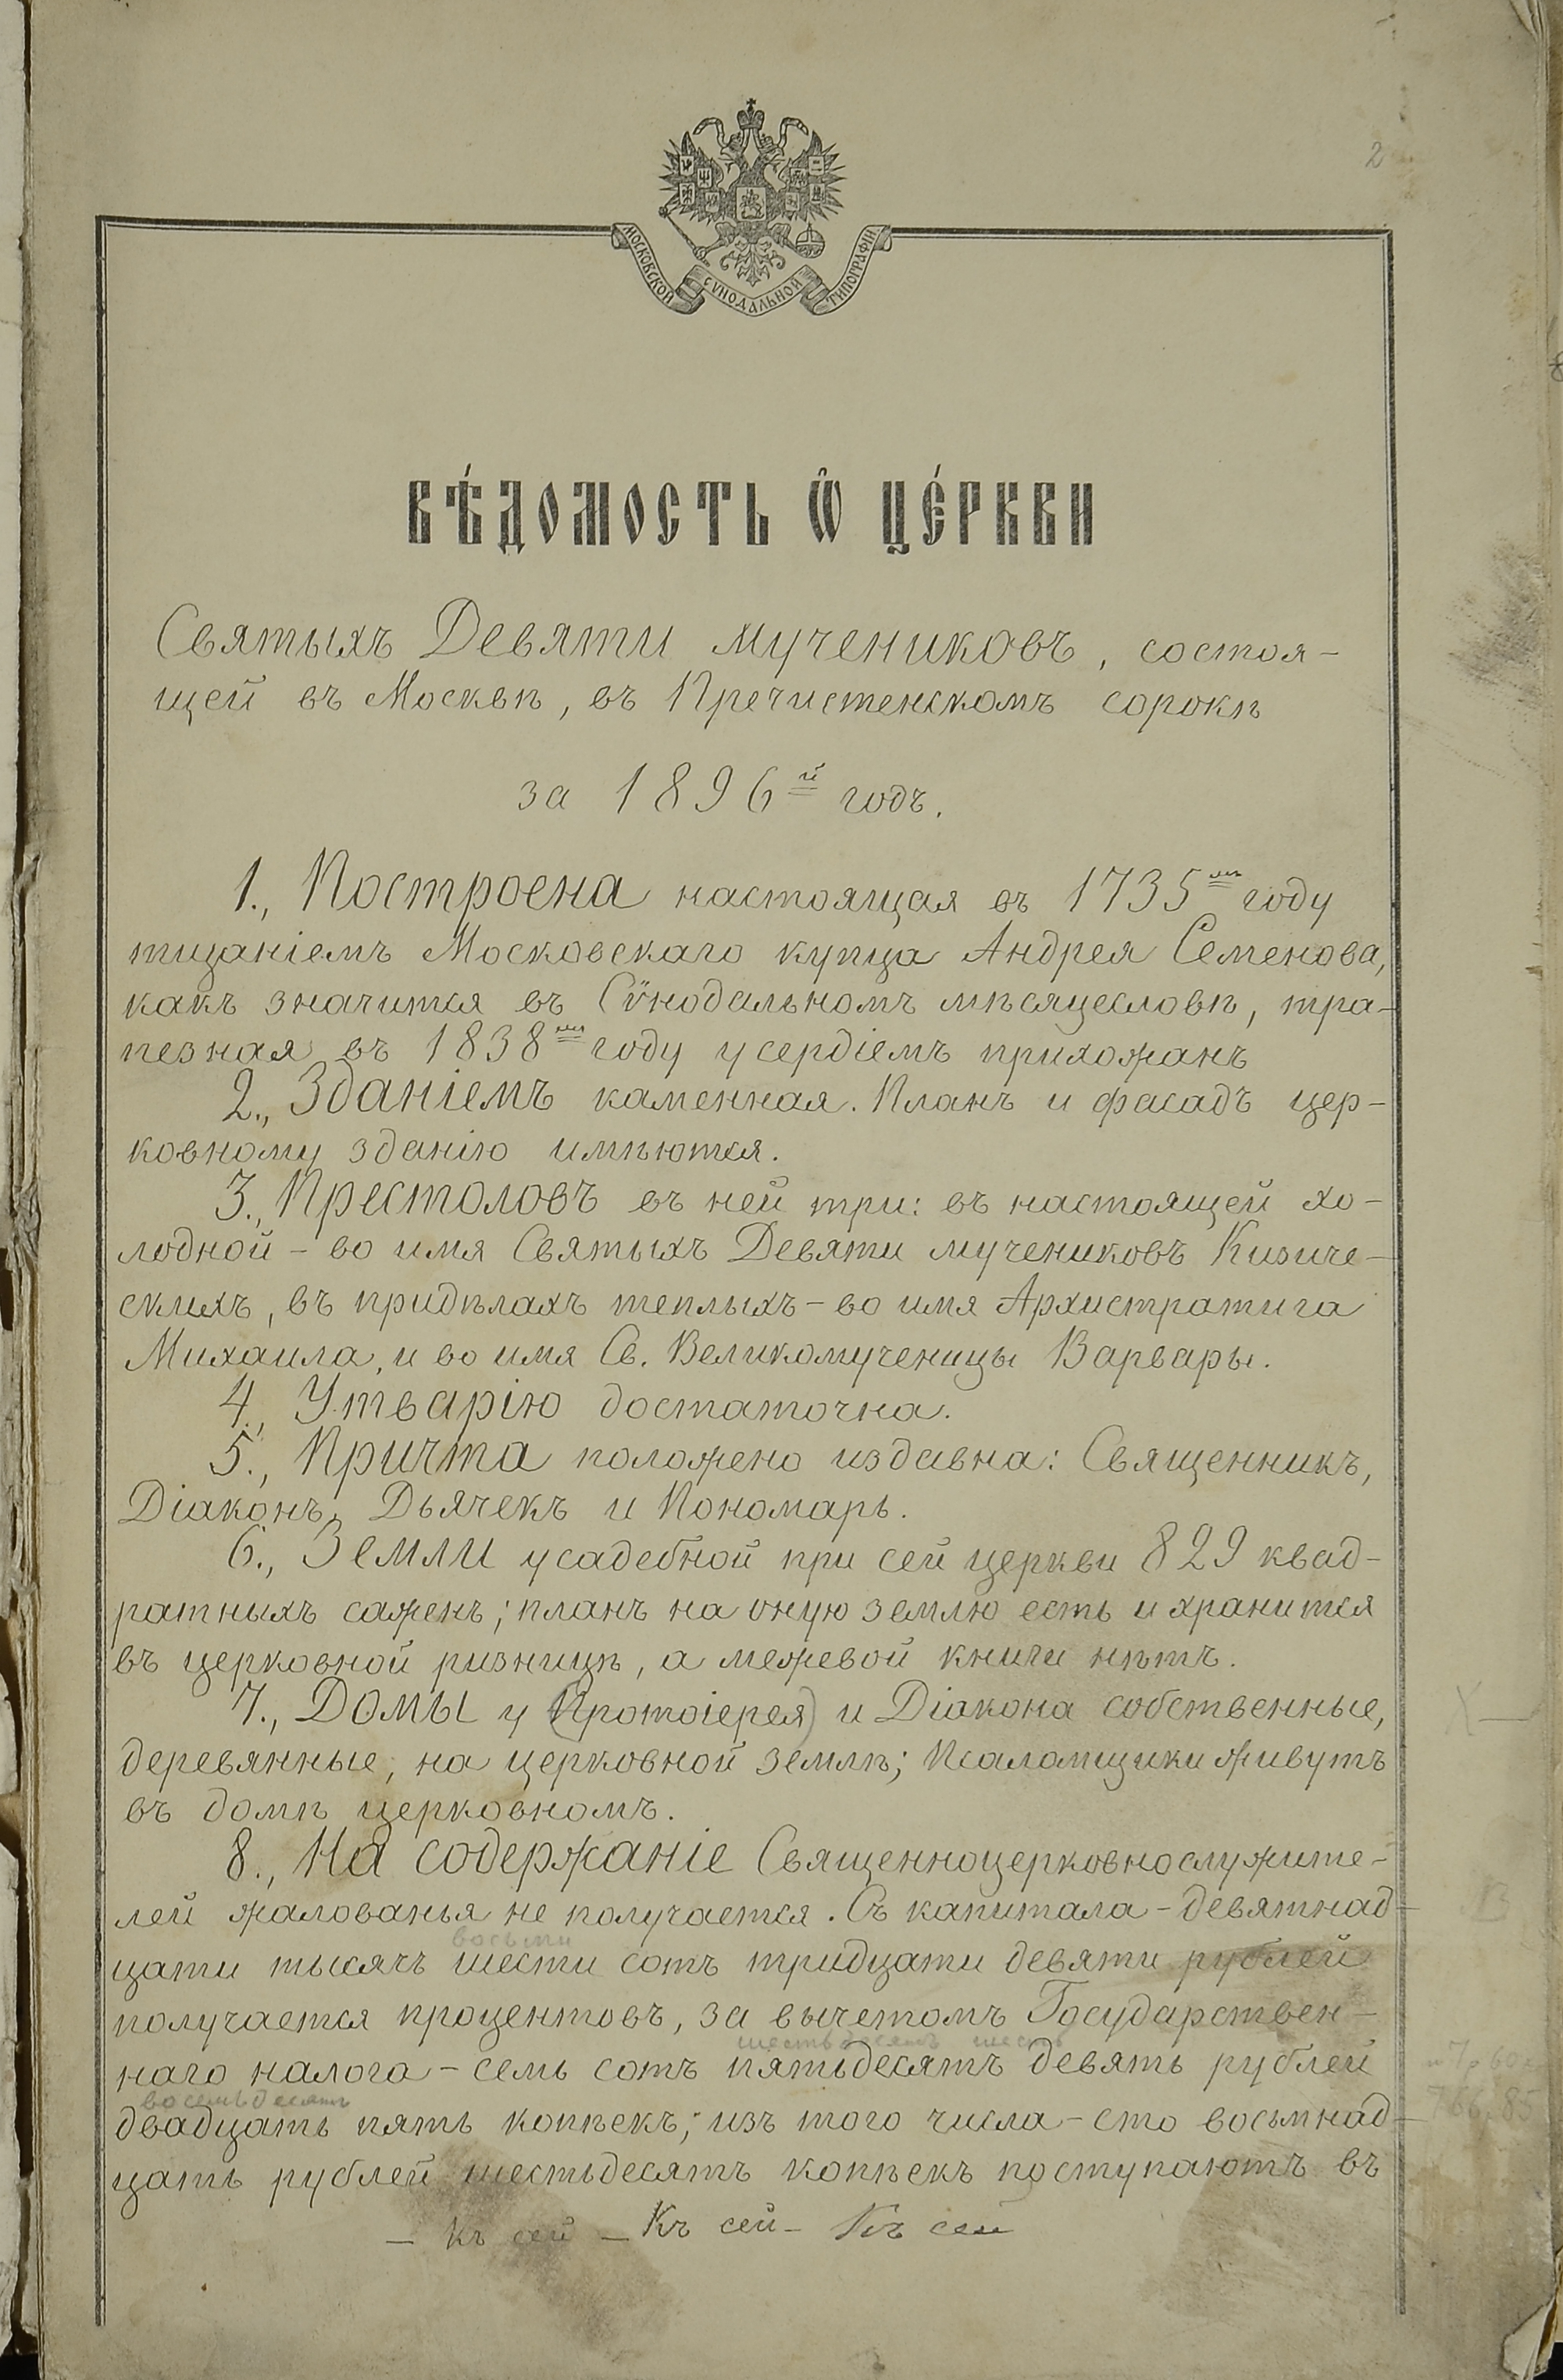 2
МОСКОВСКОЙ СѴНОДАЛЬНОЙ ТИПОГРАФІИ
ВѢ́ДОМОСТЬ Ѽ ЦЕ́РКВИ
Святыхъ Девяти мучениковъ, состоя-
щей въ Москвѣ, въ Пречистенскомъ сорокѣ
за 1896й годъ.
1., Построена настоящая въ 1735мъ году
тщаніемъ Московскаго купца Андрея Семенова,
какъ значится въ Сѵнодальномъ мѣсяцесловѣ, тра-
пезная въ 1838мъ году усердіемъ прихожанъ
2., Зданіемъ каменная. Планъ и фасадъ цер-
ковному зданію имѣются.
3., Престоловъ въ ней три: въ настоящей хо-
лодной - во имя Святыхъ Девяти мучениковъ Кизиче-
скихъ, въ придѣлахъ теплыхъ - во имя Архистратига
Михаила, и во имя Св. Великомученицы Варвары.
4., Утварію достаточна.
5., Причта положено издавна: Священникъ,
Діаконъ, Дьячекъ и Пономарь.
6., Земли усадебной при сей церкви 829 квад-
ратныхъ сажень; планъ на оную землю есть и хранится
въ церковной ризницѣ, а межевой книги нѣтъ.
7., Домы у (Протоіерея) и Діакона собственные,
деревянные, на церковной землѣ; Псаломщики живутъ
въ домѣ церковномъ.
8., На содержаніе Священноцерковнослужите-
лей жалованья не получается. Съ капитала - девятнад-
восьми
цати тысячъ шести сотъ тридцати девяти рублей
получается процентовъ, за вычетомъ Государствен-
шестьдесятъ шесть
наго налога - семь сотъ пятьдесятъ девять рублей
восемьдесятъ
двадцать пять копѣекъ; изъ того числа - сто восьмнад-
766.85
цать рублей шестьдесятъ копѣекъ поступаютъ въ
- Къ сей - Къ сей - Къ сей